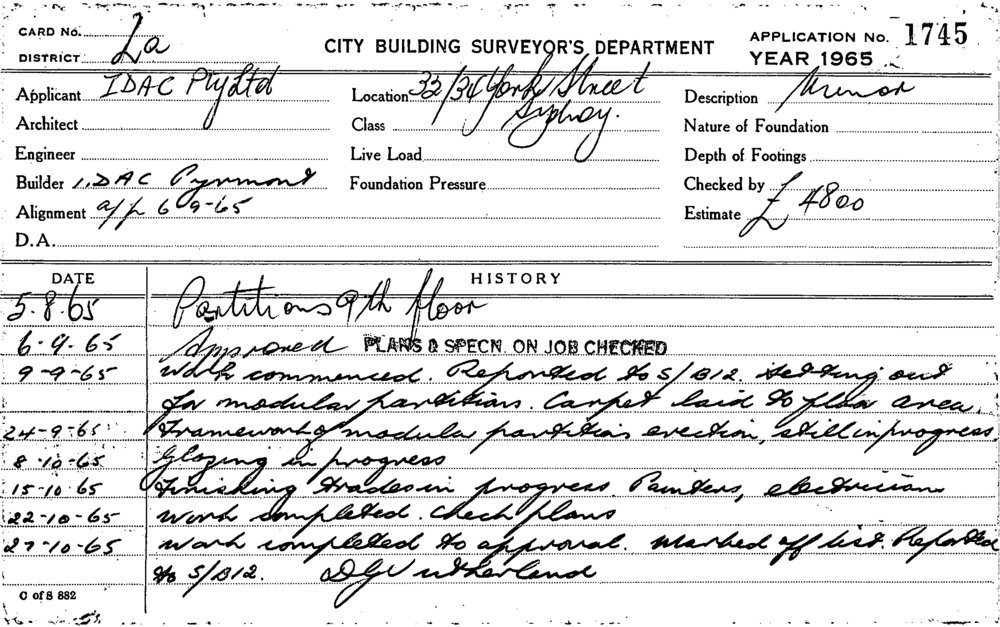 CARD No. 2a
DISTRICT
CITY BUILDING SURVEYOR'S DEPARTMENT
APPLICATION No. 1745
YEAR 1965
Applicant IDAC Pty Ltd
Location 32/34 York Street
Sydney.
Description Minor
Architect
Class
Nature of Foundation
Engineer
Live Load
Depth of Footings
Builder I.DAC Pyrmont
Foundation Pressure
Checked by
Alignment a/p 6-9-65
Estimate £4800
D.A.
DATE HISTORY
5.8.65 Partitions 9th floor
6-9-65 Approved PLANS & SPECN. ON JOB CHECKED
9-9-65 Work commenced. Reported to S/B12. Setting out
for modular partitions. Carpet laid to floor area.
24-9-65 Framework of modular partitions erection, still in progress
8-10-65 Glazing in progress
15-10-65 Finishing trades in progress. Painters, electricians
22-10-65 Work completed. Check plans
27-10-65 Work completed to approval. Marked off list. Reported
to S/B12. D G Sutherland
C of S 882